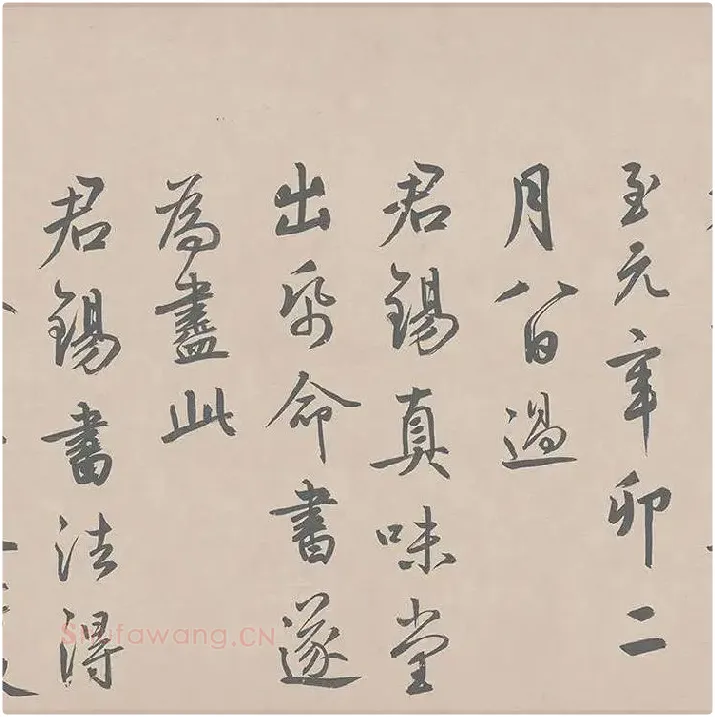 至元辛卯二
月八日過
君錫真味堂
出帋命書遂
為盡此
君錫書法得
Shufawang.CN